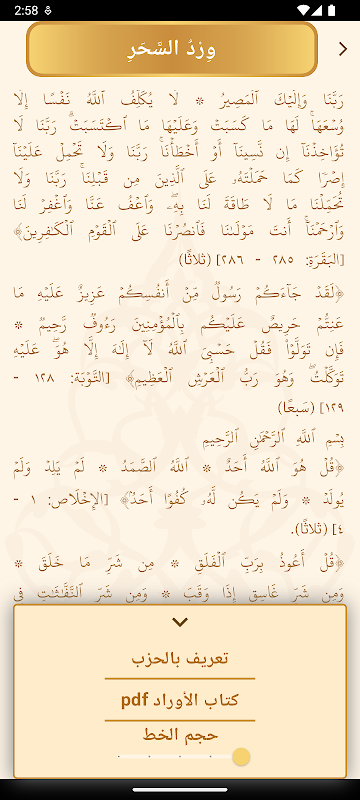 2:58
وِرْدُ السَّحَرِ
رَبَّنَا وَإِلَيْكَ ٱلْمَصِيرُ * لَا يُكَلِّفُ ٱللَّهُ نَفْسًا إِلَّا
وُسْعَهَاۚ لَهَا مَا كَسَبَتْ وَعَلَيْهَا مَا ٱكْتَسَبَتْۗ رَبَّنَا لَا
تُؤَاخِذْنَآ إِن نَّسِينَآ أَوْ أَخْطَأْنَاۚ رَبَّنَا وَلَا تَحْمِلْ عَلَيْنَآ
إِصْرًا كَمَا حَمَلْتَهُۥ عَلَى ٱلَّذِينَ مِن قَبْلِنَاۚ رَبَّنَا وَلَا
تُحَمِّلْنَا مَا لَا طَاقَةَ لَنَا بِهِۦۖ وَٱعْفُ عَنَّا وَٱغْفِرْ لَنَا
وَٱرْحَمْنَآۚ أَنتَ مَوْلَىٰنَا فَٱنصُرْنَا عَلَى ٱلْقَوْمِ ٱلْكَٰفِرِينَ﴾
[البَقَرَةِ: ٢٨٥ - ٢٨٦] (ثلاثًا)
﴿لَقَدْ جَآءَكُمْ رَسُولٌ مِّنْ أَنفُسِكُمْ عَزِيزٌ عَلَيْهِ مَا
عَنِتُّمْ حَرِيصٌ عَلَيْكُم بِٱلْمُؤْمِنِينَ رَءُوفٌ رَّحِيمٌ *
فَإِن تَوَلَّوْا۟ فَقُلْ حَسْبِىَ ٱللَّهُ لَآ إِلَٰهَ إِلَّا هُوَۖ عَلَيْهِ
تَوَكَّلْتُۖ وَهُوَ رَبُّ ٱلْعَرْشِ ٱلْعَظِيمِ﴾ [التَّوْبَة: ١٢٨ -
١٢٩] (سَبعًا)
بِسْمِ ٱللَّهِ ٱلرَّحْمَٰنِ ٱلرَّحِيمِ
﴿قُلْ هُوَ ٱللَّهُ أَحَدٌ * ٱللَّهُ ٱلصَّمَدُ * لَمْ يَلِدْ وَلَمْ
يُولَدْ * وَلَمْ يَكُن لَّهُۥ كُفُوًا أَحَدٌۢ﴾ [الإِخْلَاص: ١ -
٤] (ثلاثًا).
﴿قُلْ أَعُوذُ بِرَبِّ ٱلْفَلَقِ * مِن شَرِّ مَا خَلَقَ *
وَمِن شَرِّ غَاسِقٍ إِذَا وَقَبَ * وَمِن شَرِّ ٱلنَّفَّٰثَٰتِ فِى
تعريف بالحزب
كتاب الأوراد pdf
حجم الخط